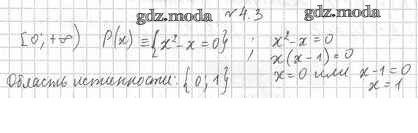 gdz.moda №4.3 gdz.moda
[0; +∞) P(x) ≡ {x² - x = 0} ; x² - x = 0
; x(x - 1) = 0
Область истинности: {0; 1} x = 0 или x - 1 = 0
x = 1